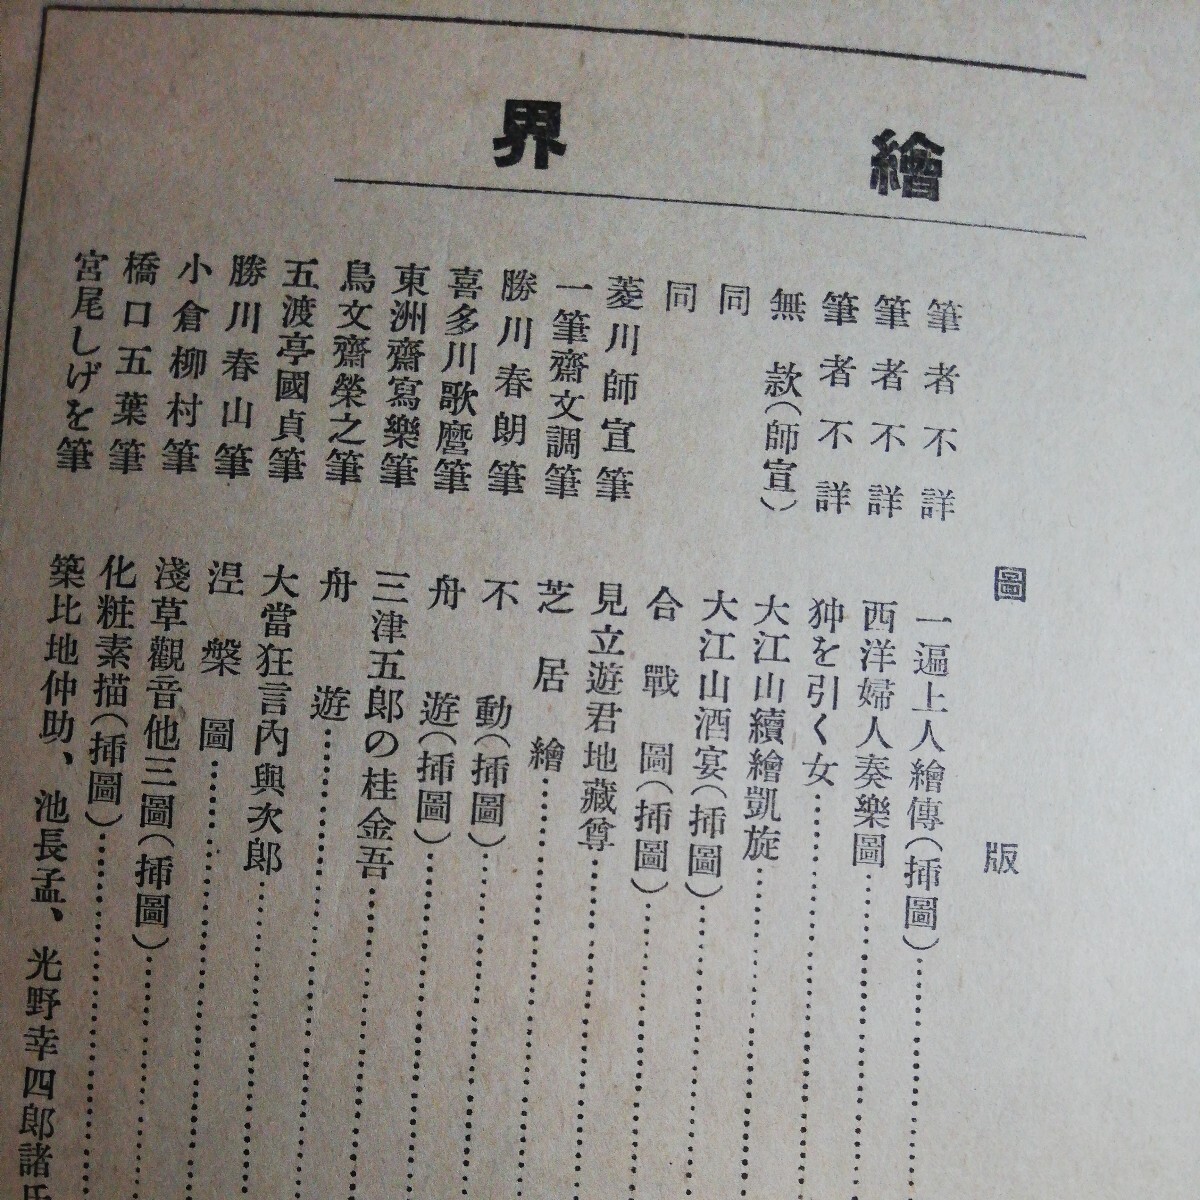 繪界
圖版
筆者不詳 一遍上人繪傳(揷圖)
筆者不詳 西洋婦人奏樂圖
筆者不詳 狆を引く女
無款(師宣) 大江山續繪凱旋
同 大江山酒宴(揷圖)
同 合戰圖(揷圖)
菱川師宣筆 見立遊君地藏尊
一筆齋文調筆 芝居繪
勝川春朗筆 不動(揷圖)
喜多川歌麿筆 舟遊(揷圖)
東洲齋寫樂筆 三津五郎の桂金吾
鳥文齋榮之筆 舟遊
五渡亭國貞筆 大當狂言內與次郎
勝川春山筆 涅槃圖
小倉柳村筆 淺草觀音他三圖(揷圖)
橋口五葉筆 化粧素描(揷圖)
宮尾しげを筆 築比地仲助、池長孟、光野幸四郎諸氏